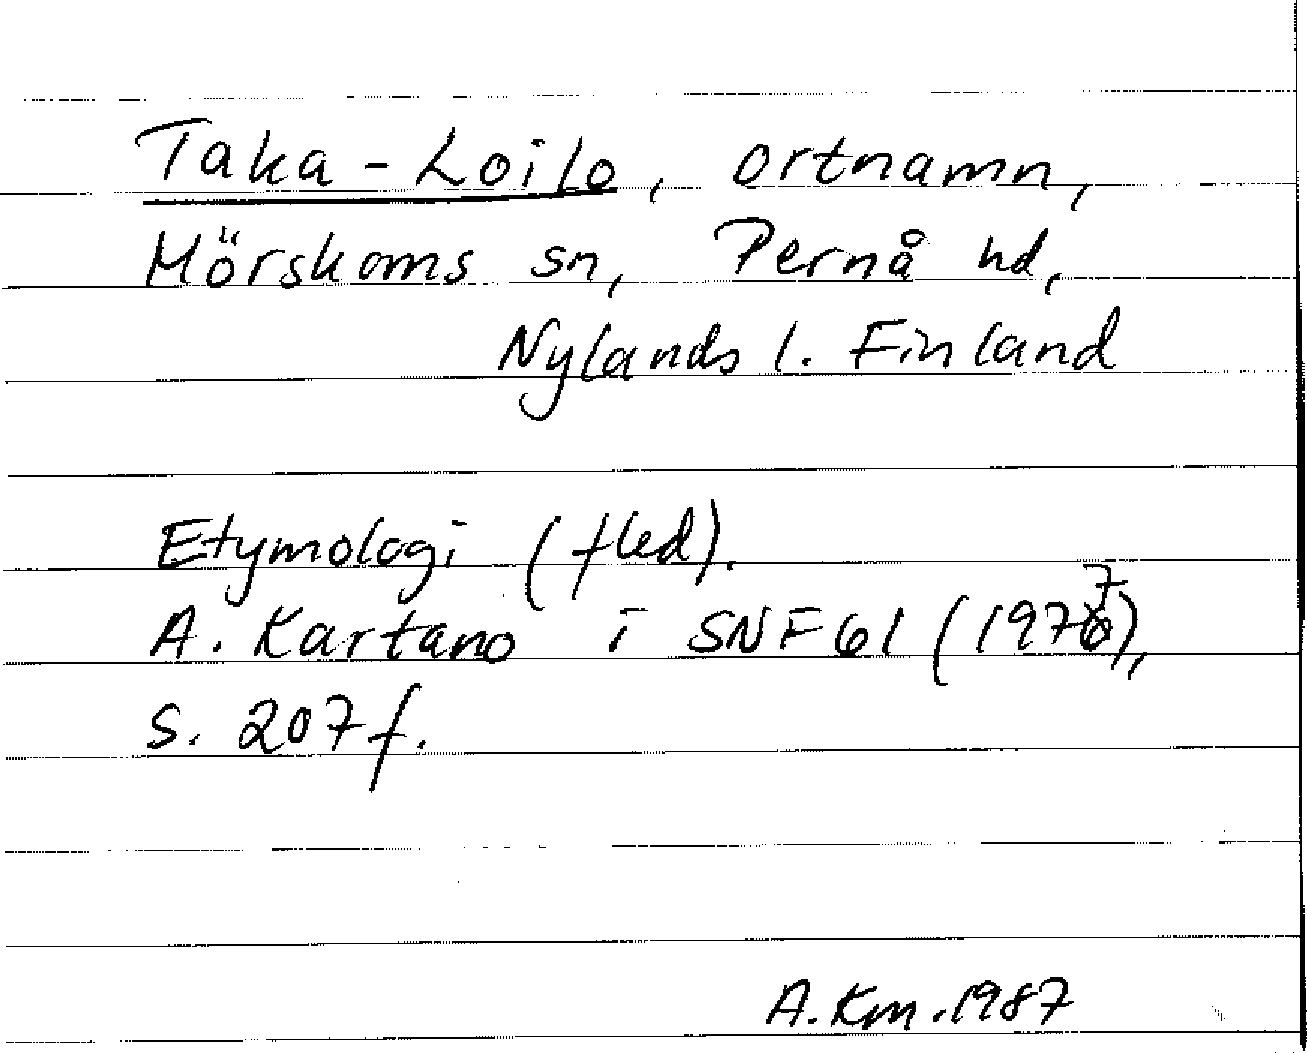 Taka-Loilo, ortnamn,
Mörskoms sn, Pernå hd,
Nylands l. Finland
Etymologi (fled).
A. Kartano i SNF 61 (1977),
s. 207 f.
A. Km. 1987